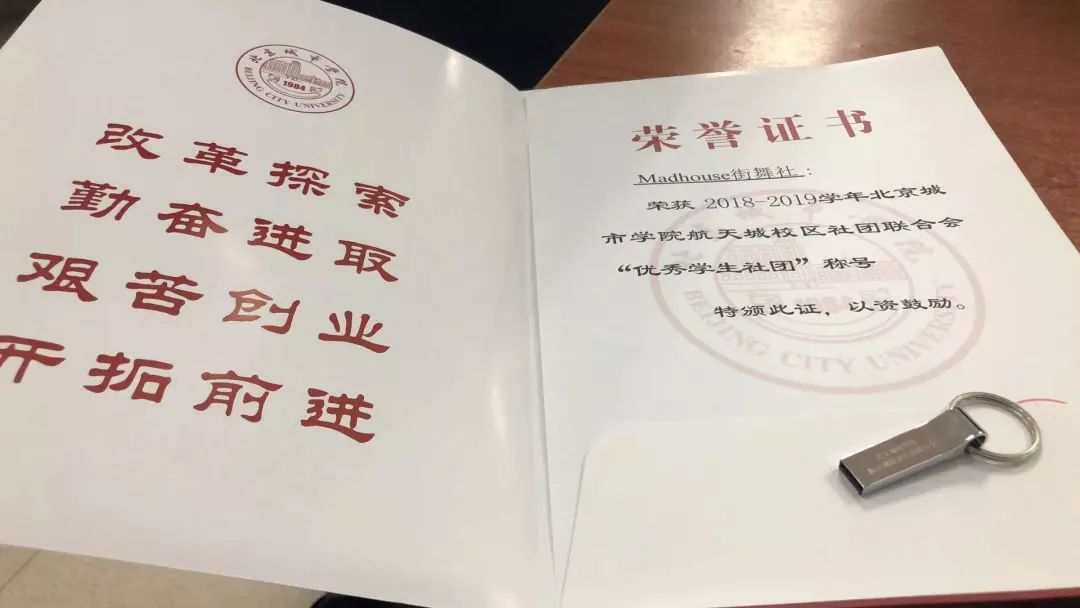 北京城市学院
1984
BEIJING CITY UNIVERSITY
改革探索
勤奋进取
艰苦创业
开拓前进
荣誉证书
Madhouse街舞社：
荣获 2018-2019学年北京城
市学院航天城校区社团联合会
“优秀学生社团”称号
特颁此证，以资鼓励。
BEIJING CITY UNIVERSITY